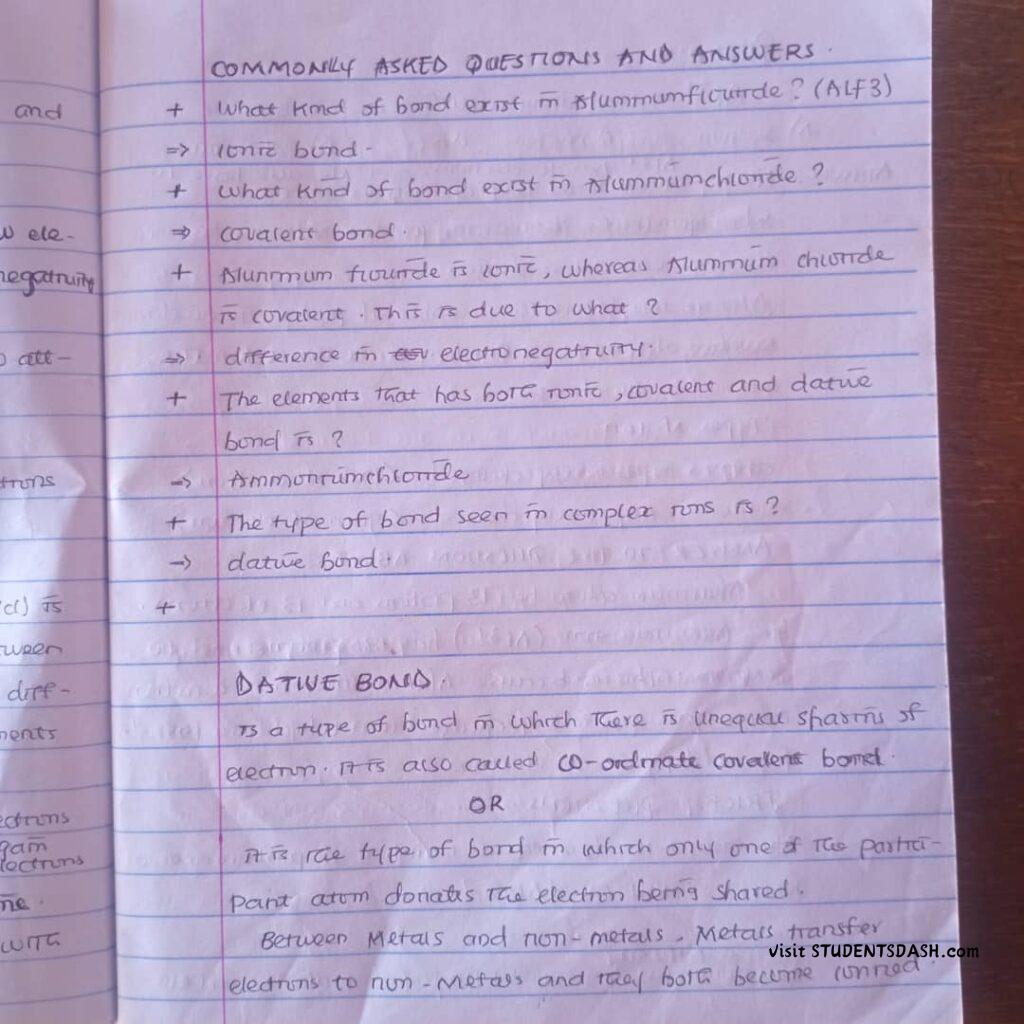 COMMONLY ASKED QUESTIONS AND ANSWERS.
and
+ What kind of bond exist in Alummumflourride? (ALF3)
=> ionic bond-
+ What kind of bond exist in Alummumchlorride?
w ele-
=> covalent bond.
negativity
+ Alummum flourride is ionic, whereas Alummum chloride
is covalent. This is due to what?
o att-
=> difference in electronegativity.
+ The elements that has both ionic, covalent and dative
bond is?
trons
-> Ammoniumchloride
+ The type of bond seen in complex ions is?
-> dative bond.
cl) is
+
tween
diff-
DATIVE BOND.
ments
Is a type of bond in which there is unequal sharing of
electron. It is also called co-ordinate covalent bond.
OR
ectrons
gain
lectrons
It is the type of bond in which only one of the partici-
ne.
pant atom donates the electron being shared.
with
Between Metals and non-metals. Metals transfer
visit STUDENTSDASH.com
electrons to non-Metals and they both become ionized.